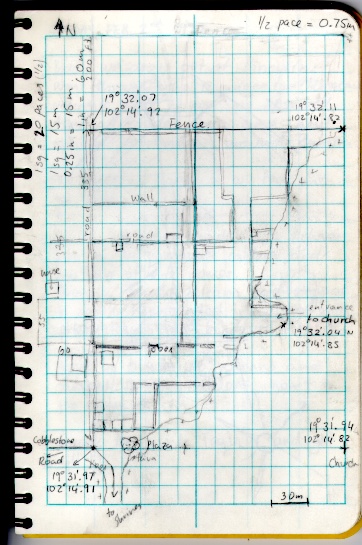 N
1/2 pace = 0.75m
1 sq = 20 paces (1/2)
1 sq = 15 m
0.25in = 15 m
1 in = 60m
200 ft
19°32.07
102°14.92
19°32.11
102°14.82
Fence
335
road
wall
road
entrance
to church
19°32.04 N
102°14.85
55
door
Cobblestone
Road
19°31.97
102°14.91
Plaza
lava
to
19°31.94
102°14.82
Church
30m